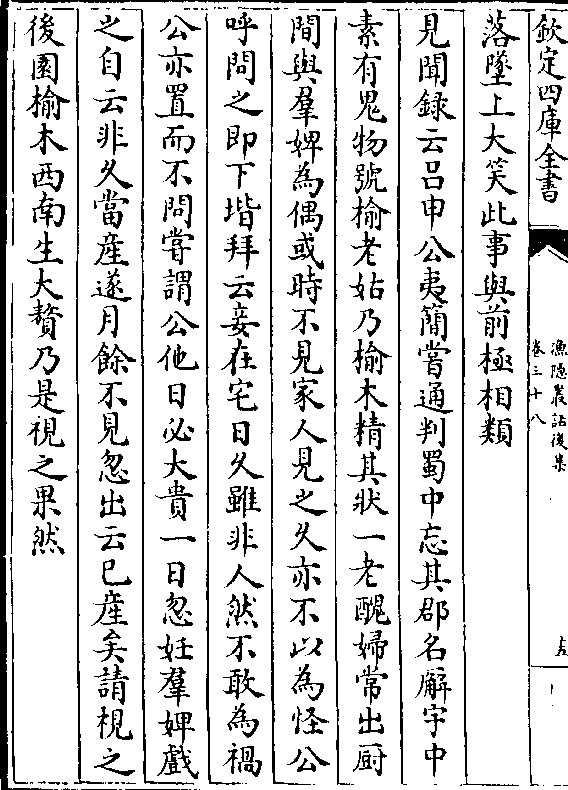 欽定四庫全書
漁隱叢話後集
卷三十八
落墜上大笑此事與前極相類
見聞録云呂申公夷簡嘗通判蜀中忘其郡名廨宇中
素有鬼物號榆老姑乃榆木精其狀一老醜婦常出厨
間與羣婢為偶或時不見家人見之久亦不以為怪公
呼問之即下堦拜云妾在宅日久雖非人然不敢為禍
公亦置而不問嘗謂公他日必大貴一日忽妊羣婢戲
之自云非久當産遂月餘不見忽出云已産矣請視之
後園榆木西南生大贅乃是視之果然